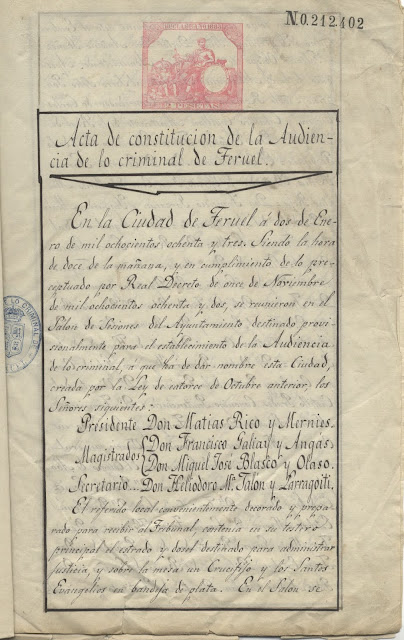 N0.212.402
PESETAS
Acta de constitución de la Audien-
cia de lo criminal de Teruel.
En la Ciudad de Teruel á dos de Ene-
ro de mil ochocientos ochenta y tres. Siendo la hora
de doce de la mañana, y en cumplimiento de lo pre-
ceptuado por Real Decreto de once de Noviembre
de mil ochocientos ochenta y dos, se reunieron en el
Salon de Sesiones del Ayuntamiento destinado provi-
sionalmente para el establecimiento de la Audiencia
de lo criminal, á que ha de dar nombre esta Ciudad,
creada por la Ley de catorce de Octubre anterior, los
Señores siguientes:
Presidente Don Matías Rico y Mernies.
Magistrados Don Francisco Galiay y Angás.
Don Miguel José Blasco y Olaso.
Secretario... Don Heliodoro Mª Talón y Larragoiti.
El referido local convenientemente decorado y prepa-
rado para recibir al Tribunal, contenia en su testero
principal el estrado y dosel destinado para administrar
Justicia, y sobre la mesa un Crucifijo y los Santos
Evangelios en bandeja de plata. En el Salon se